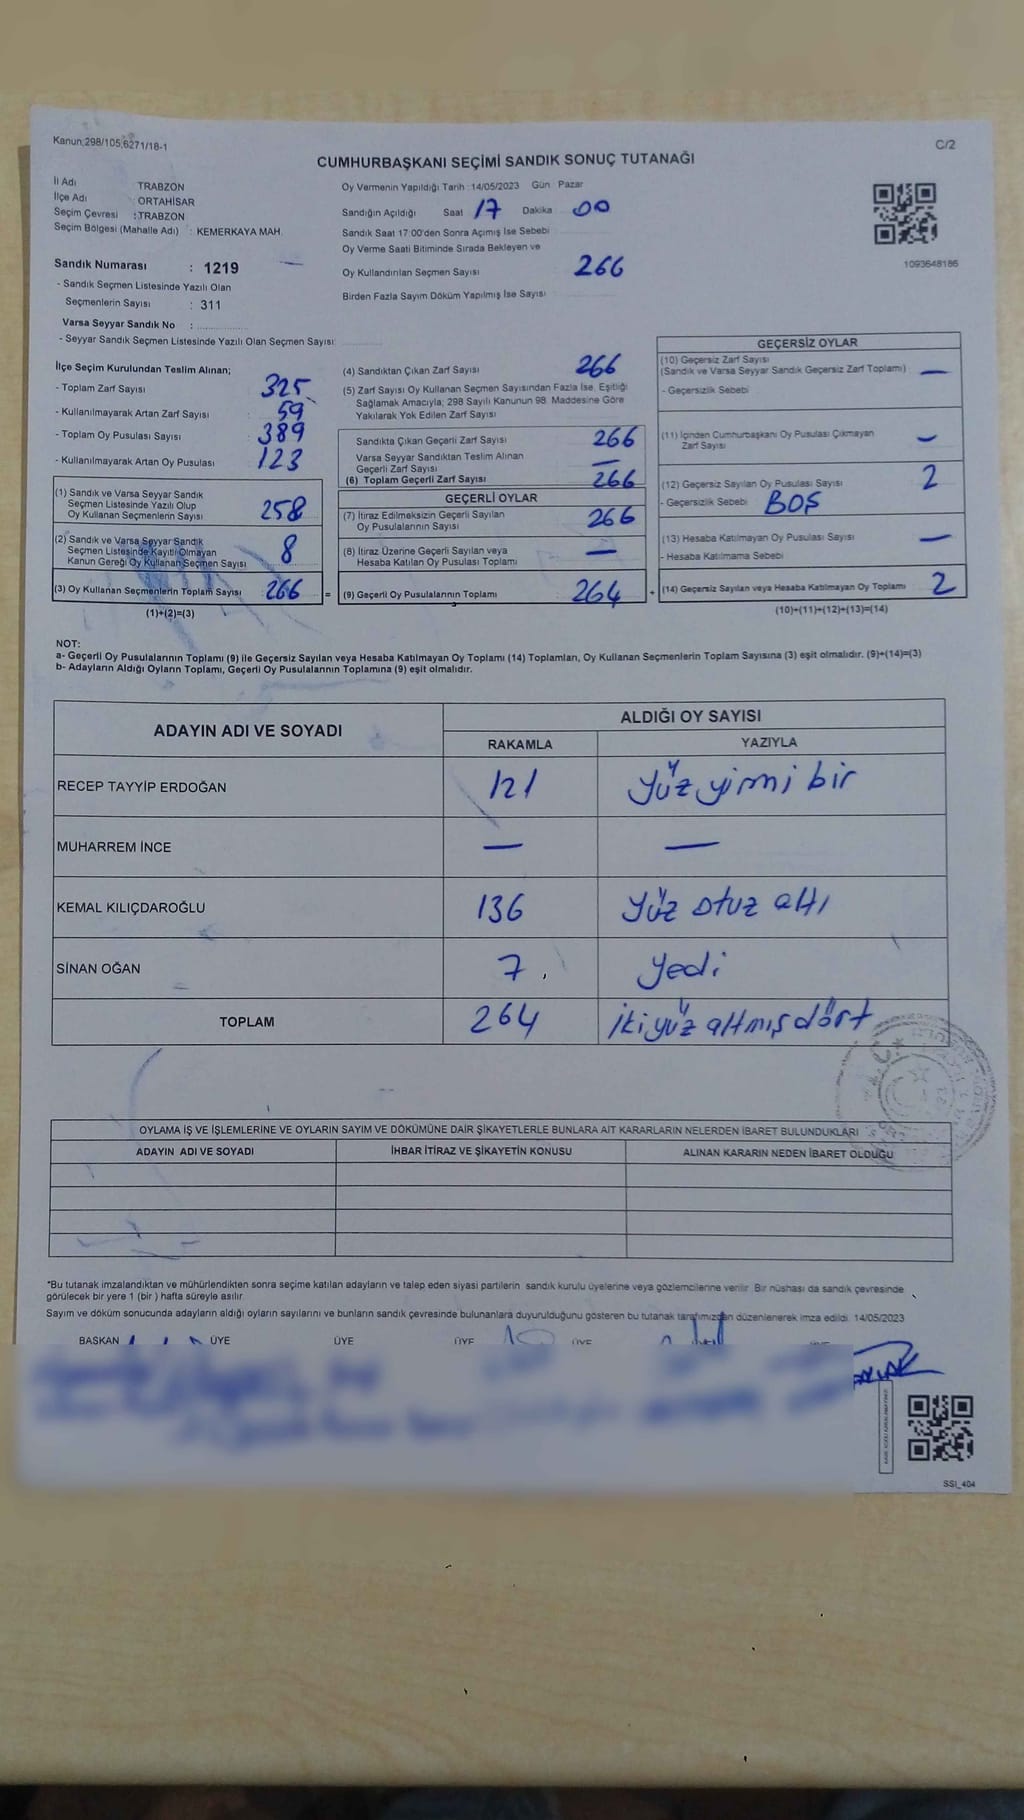 Kanun;298/105;6271/18-1
C/2
CUMHURBAŞKANI SEÇİMİ SANDIK SONUÇ TUTANAĞI
İl Adı TRABZON
İlçe Adı : ORTAHİSAR
Seçim Çevresi : TRABZON
Seçim Bölgesi (Mahalle Adı) : KEMERKAYA MAH.
Oy Vermenin Yapıldığı Tarih : 14/05/2023 Gün : Pazar
Sandığın Açıldığı Saat 17 Dakika 00
Sandık Saat 17:00'den Sonra Açımış İse Sebebi
Oy Verme Saati Bitiminde Sırada Bekleyen ve
Oy Kullandırılan Seçmen Sayısı 266
Birden Fazla Sayım Döküm Yapılmış İse Sayısı
1093648186
Sandık Numarası : 1219
- Sandık Seçmen Listesinde Yazılı Olan
Seçmenlerin Sayısı : 311
Varsa Seyyar Sandık No :
- Seyyar Sandık Seçmen Listesinde Yazılı Olan Seçmen Sayısı:
İlçe Seçim Kurulundan Teslim Alınan;
- Toplam Zarf Sayısı 325
- Kullanılmayarak Artan Zarf Sayısı : 59
- Toplam Oy Pusulası Sayısı : 389
- Kullanılmayarak Artan Oy Pusulası 123
(1) Sandık ve Varsa Seyyar Sandık
Seçmen Listesinde Yazılı Olup
Oy Kullanan Seçmenlerin Sayısı 258
(2) Sandık ve Varsa Seyyar Sandık
Seçmen Listesinde Kayıtlı Olmayan
Kanun Gereği Oy Kullanan Seçmen Sayısı 8
(3) Oy Kullanan Seçmenlerin Toplam Sayısı : 266 =
(1)+(2)=(3)
(4) Sandıktan Çıkan Zarf Sayısı 266
(5) Zarf Sayısı Oy Kullanan Seçmen Sayısından Fazla İse, Eşitliği
Sağlamak Amacıyla; 298 Sayılı Kanunun 98. Maddesine Göre
Yakılarak Yok Edilen Zarf Sayısı
Sandıkta Çıkan Geçerli Zarf Sayısı 266
Varsa Seyyar Sandıktan Teslim Alınan
Geçerli Zarf Sayısı —
(6) Toplam Geçerli Zarf Sayısı 266
GEÇERLİ OYLAR
(7) İtiraz Edilmeksizin Geçerli Sayılan
Oy Pusulalarının Sayısı 266
(8) İtiraz Üzerine Geçerli Sayılan veya
Hesaba Katılan Oy Pusulası Toplamı —
(9) Geçerli Oy Pusulalarının Toplamı 264 +
GEÇERSİZ OYLAR
(10) Geçersiz Zarf Sayısı
(Sandık ve Varsa Seyyar Sandık Geçersiz Zarf Toplamı) —
- Geçersizlik Sebebi
(11) İçinden Cumhurbaşkanı Oy Pusulası Çıkmayan
Zarf Sayısı —
(12) Geçersiz Sayılan Oy Pusulası Sayısı 2
- Geçersizlik Sebebi BOŞ
(13) Hesaba Katılmayan Oy Pusulası Sayısı —
- Hesaba Katılmama Sebebi
(14) Geçersiz Sayılan veya Hesaba Katılmayan Oy Toplamı 2
(10)+(11)+(12)+(13)=(14)
NOT:
a- Geçerli Oy Pusulalarının Toplamı (9) ile Geçersiz Sayılan veya Hesaba Katılmayan Oy Toplamı (14) Toplamları, Oy Kullanan Seçmenlerin Toplam Sayısına (3) eşit olmalıdır. (9)+(14)=(3)
b- Adayların Aldığı Oyların Toplamı, Geçerli Oy Pusulalarının Toplamına (9) eşit olmalıdır.
ADAYIN ADI VE SOYADI ALDIĞI OY SAYISI
RAKAMLA YAZIYLA
RECEP TAYYİP ERDOĞAN 121 Yüz yirmi bir
MUHARREM İNCE — —
KEMAL KILIÇDAROĞLU 136 Yüz otuz altı
SİNAN OĞAN 7 Yedi
TOPLAM 264 İkiyüz altmış dört
T.C.
OYLAMA İŞ VE İŞLEMLERİNE VE OYLARIN SAYIM VE DÖKÜMÜNE DAİR ŞİKAYETLERLE BUNLARA AİT KARARLARIN NELERDEN İBARET BULUNDUKLARI
ADAYIN ADI VE SOYADI İHBAR İTİRAZ VE ŞİKAYETİN KONUSU ALINAN KARARIN NEDEN İBARET OLDUĞU
*Bu tutanak imzalandıktan ve mühürlendikten sonra seçime katılan adayların ve talep eden siyasi partilerin sandık kurulu üyelerine veya gözlemcilerine verilir. Bir nüshası da sandık çevresinde
görülecek bir yere 1 (bir ) hafta süreyle asılır.
Sayım ve döküm sonucunda adayların aldığı oyların sayılarını ve bunların sandık çevresinde bulunanlara duyurulduğunu gösteren bu tutanak tarafımızdan düzenlenerek imza edildi. 14/05/2023
BAŞKAN ÜYE ÜYE ÜYE ÜYE
SSİ_404